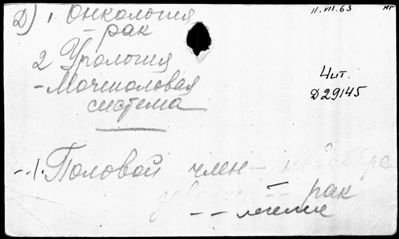 Д) 1. Онкология 11.VII.63 нг
- рак
2 Урология
- Мочеполовая Чит.
система Д29145
--1. Половой член -
- рак
- - лечение